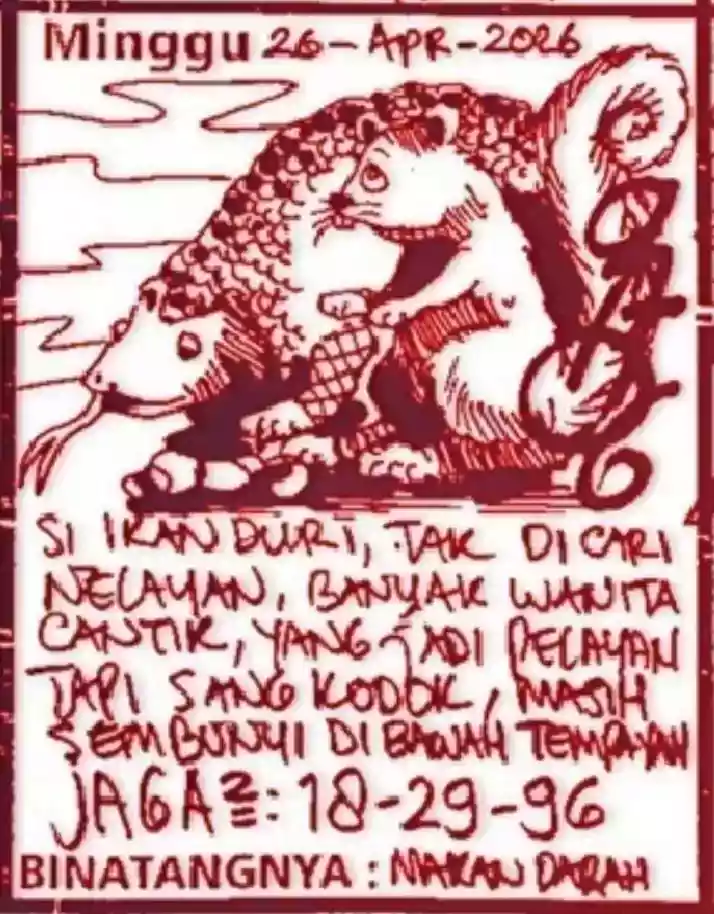 Minggu 26-APR-2026
SI IKAN DURI, TAK DI CARI
NELAYAN, BANYAK WANITA
CANTIK, YANG JADI PELAYAN
TAPI SANG KODOK, MASIH
SEMBUNYI DI BAWAH TEMPAYAN
JAGA2: 18-29-96
BINATANGNYA : MAKAN DARAH